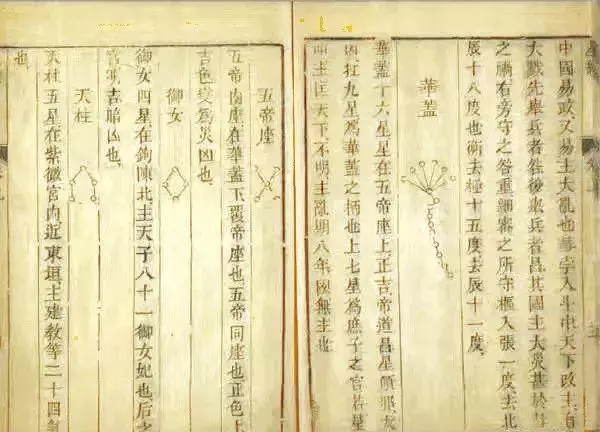 中國易政又易主大亂也彗孛入斗中天下政主有
大戮先舉兵者咎後舉兵者昌其國主大災甚於彗
之禍右旁守之咎重細審之所守樞入張一度去北
辰十八度也衡去極十五度去辰十一度
華蓋
華蓋十六星星在五帝座上正吉帝道昌星傾邪大
凶杠九星為華蓋之柄也上七星為庶子之官若星
明主匡天下不明主亂明八年國無主也
五帝座
五帝內座在華蓋下覆帝座也五帝同座也正色上
吉色變為災凶也
御女
御女四星在鉤陳北主天子八十一御女妃也后之
官明吉暗凶也
天柱
天柱五星在紫微宮內近東垣主建教等二十四氣
也
星經